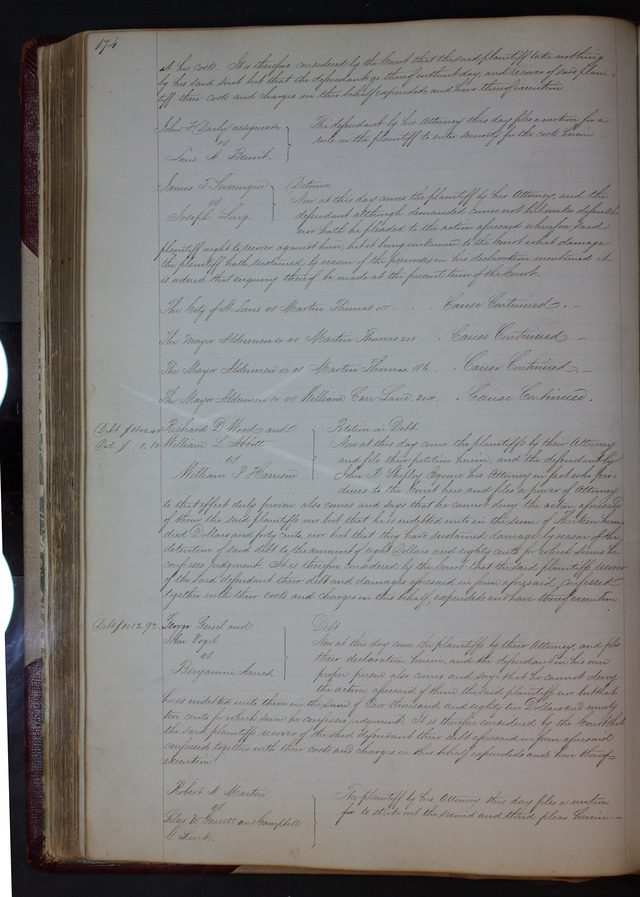 174
at his costs. It is therefore considered by the Court that the said plaintiff take nothing
by his said suit but that the defendant go thereof without day, and recover of said plain-
tiff their costs and charges in this behalf expended and have thereof execution.
John H Darby assignee
vs
Louis A Benoit.
The defendant by his Attorney this day files a motion for a
rule on the plaintiff to enter security for the costs herein
James T Sweringen
vs
Joseph Ling.
Detinue
Now at this day comes the plaintiff by his Attorney, and the
defendant although demanded comes not but makes default
nor hath he pleaded to the action aforesaid wherefore said
plaintiff ought to recover against him, but it being unknown to the Court what damage
the plaintiff hath sustained by reason of the premises in his declaration mentioned it
is ordered that enquiry thereof be made at the present term of the Court.
The City of St Louis vs Martin Thomas . . Cause Continued. -
The Mayor Aldermen &c vs Martin Thomas . Cause Continued. -
The Mayor Aldermen &c vs Martin Thomas 186 . Cause Continued. -
The Mayor Aldermen &c vs William Carr Lane 204. . Cause Continued.
Debt $1340.40
Dam $ 8.80
Richard D Wood and
William L Abbott
vs
William P Harrison
Petition in Debt
Now at this day come the plaintiffs by their Attorney
and file their petition herein, and the defendant by
John R Shepley Esquire his Attorney in fact who pro-
duces to the Court here and files a power of Attorney
to that effect duly proven also comes and says that he cannot deny the action aforesaid
of them the said plaintiffs nor but that he is indebted unto in the sum of Thirteen hun-
dred Dollars and forty cents nor but that they have sustained damage by reason of the
detention of said debt to the amount of eight Dollars and eighty cents for which sums he
confesses judgment. It is therefore considered by the Court that the said plaintiffs recover
of the said defendant their debt and damages aforesaid in form aforesaid, confessed
together with their costs and charges in this behalf expended and have thereof execution.
Debt $1082.92
George Geisel and
John Vogel
vs
Benjamin Ames.
Debt
Now at this day come the plaintiffs by their Attorney, and file
their declaration herein, and the defendant in his own
proper person also comes and says that he cannot deny
the action aforesaid of them the said plaintiffs nor but that
he is indebted unto them in the sum of One thousand and eighty two Dollars and ninety
two cents for which sum he confesses judgment. It is therefore considered by the Court that
the said plaintiffs recover of the said defendant their debt aforesaid in form aforesaid
confessed together with their costs and charges in this behalf expended and have thereof
execution.
Robert N Martin
vs
Silas W Garrett and Campbell
G
The plaintiff by his Attorney this day files a motion
to strike out the second and third pleas herein -